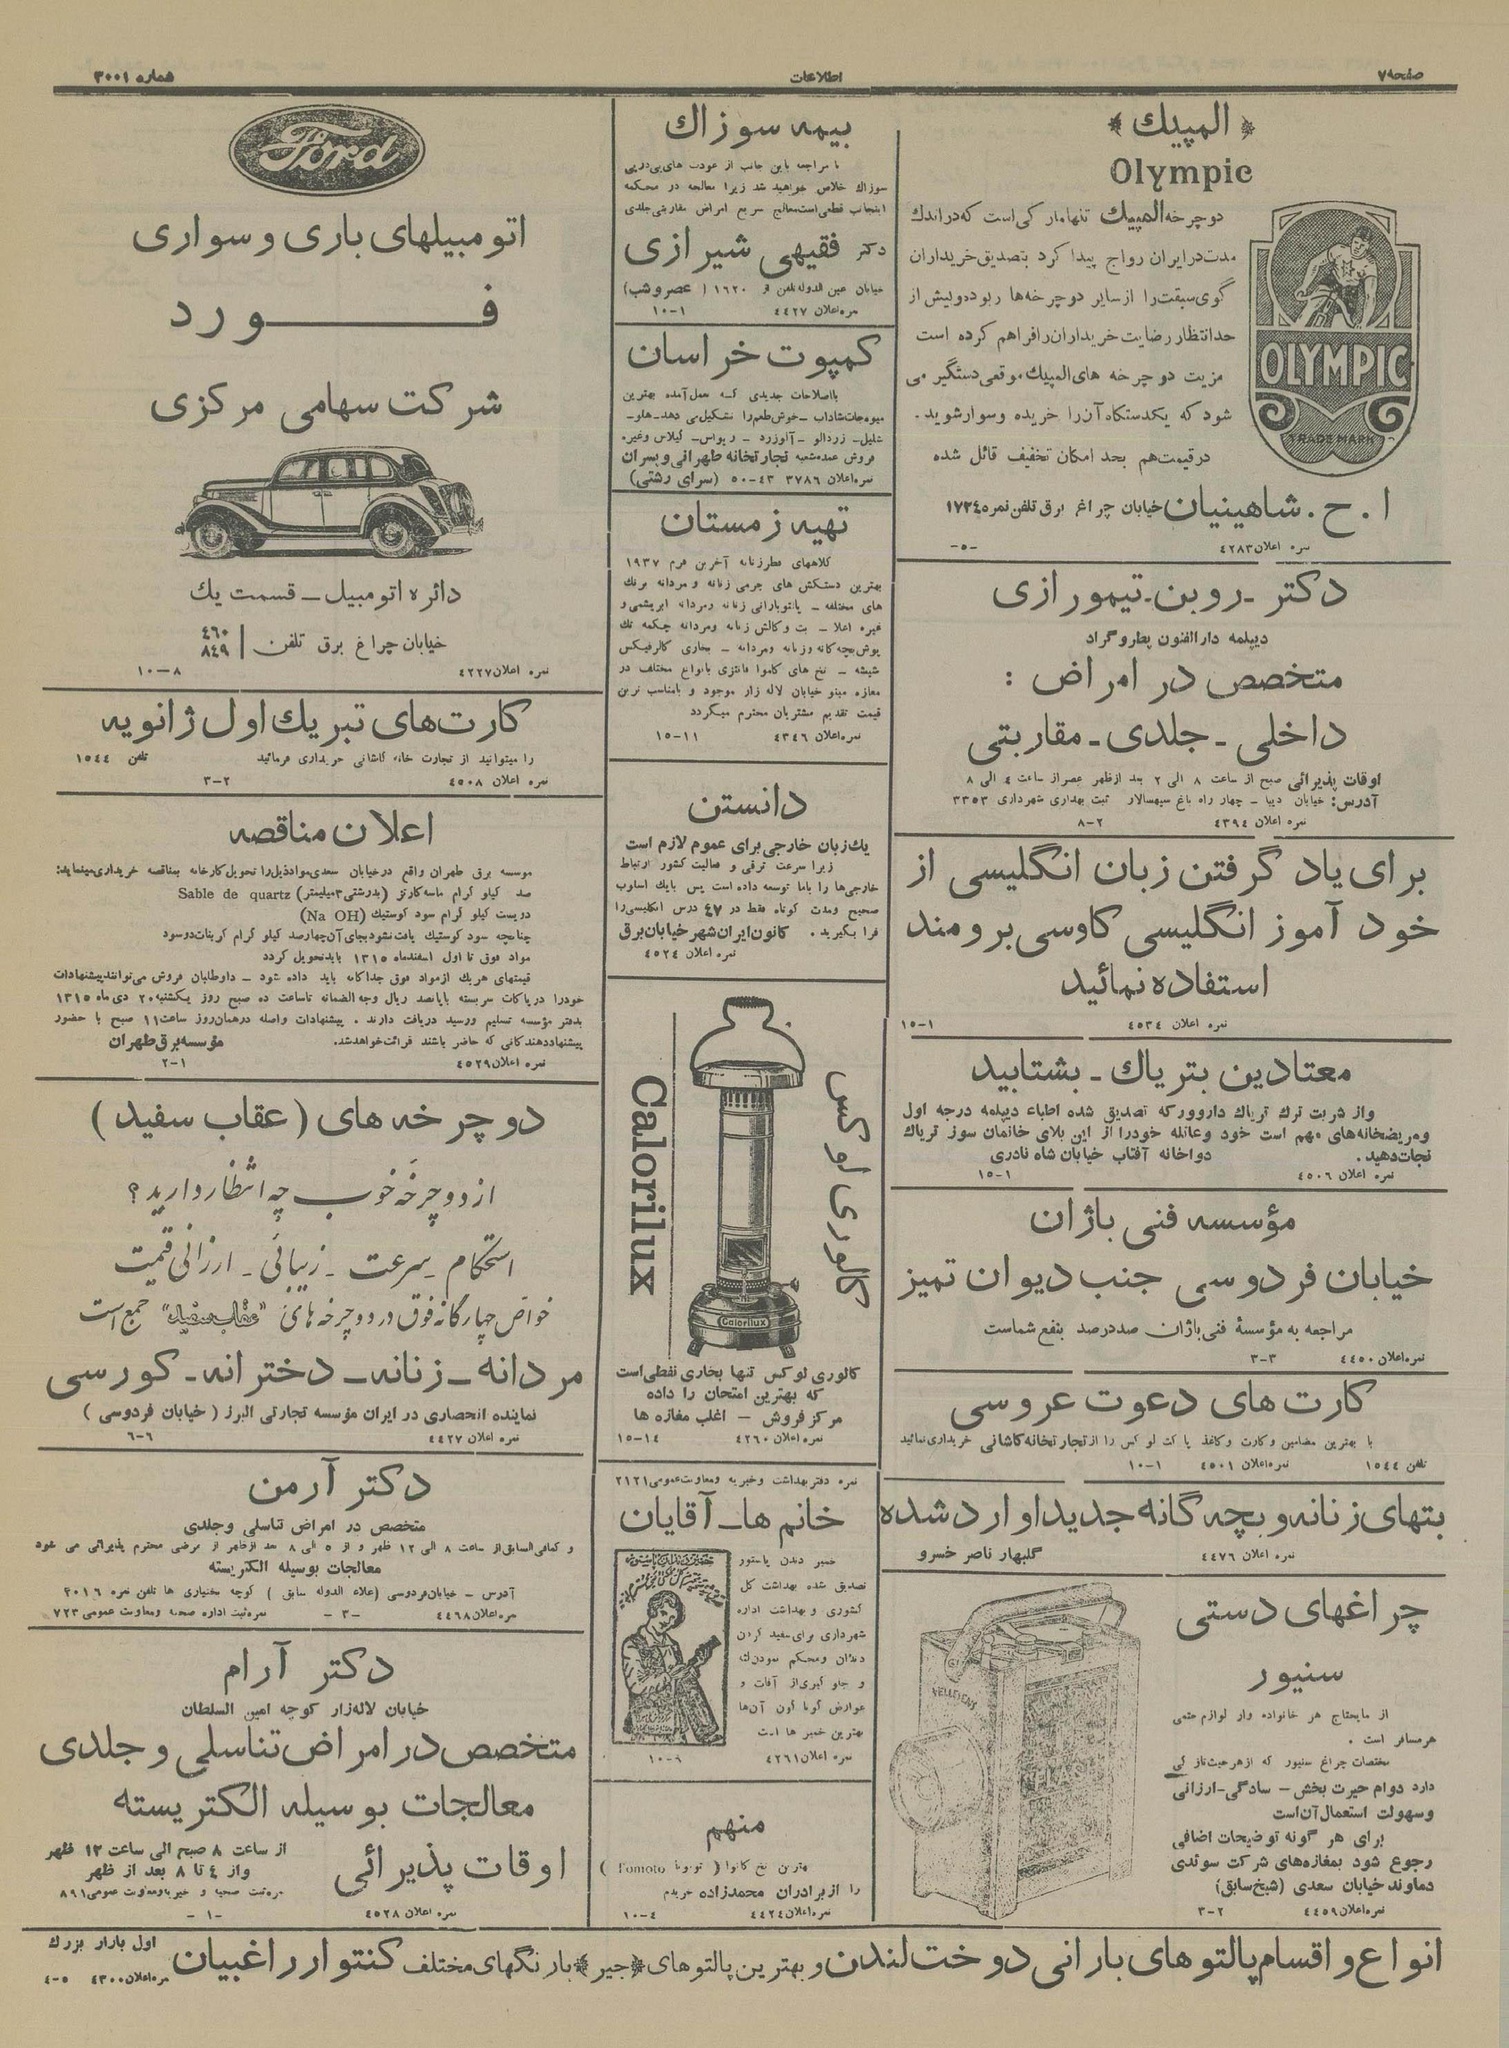 صفحه ۷
اطلاعات
شماره ۳۰۰۱
المپیك
Olympic
دوچرخه المپیك تنها مارکی است که در اندك
مدت در ایران رواج پیدا کرد بتصدیق خریداران
گوی سبقت را از سایر دوچرخه ها ربوده و بیش از
حد انتظار رضایت خریداران را فراهم کرده است
مزیت دوچرخه های المپیك موقعی دستگیر می
شود که یکدستگاه آن را خریده و سوار شوید.
در قیمت هم بحد امکان تخفیف قائل شده
OLYMPIC
TRADE MARK
ا . ح . شاهینیان خیابان چراغ برق تلفن نمره ۱۷۳۴
نمره اعلان ۴۲۸۳ -۵-
دکتر ـ روبن ـ تیمورازی
دیپلمه دارالفنون پطروگراد
متخصص در امراض :
داخلی ـ جلدی ـ مقاربتی
اوقات پذیرائی صبح از ساعت ۸ الی ۲ بعد از ظهر عصر از ساعت ٤ الی ۸
آدرس: خیابان دیبا ـ چهار راه باغ سپهسالار ثبت بهداری شهرداری ۳۳۵۳
نمره اعلان ۴۳۹۴ ۸-۲
برای یاد گرفتن زبان انگلیسی از
خود آموز انگلیسی کاوسی برومند
استفاده نمائید
نمره اعلان ۴۵۳۴ ۱۵-۱
معتادین بتریاك ـ بشتابید
و از شربت ترك تریاك داروور که تصدیق شده اطباء دیپلمه درجه اول
و مریضخانه های مهم است خود و عائله خود را از این بلای خانمان سوز تریاك
نجات دهید. دواخانه آفتاب خیابان شاه نادری
نمره اعلان ۴۵۰۶ ۱۵-۱
مؤسسه فنی باژان
خیابان فردوسی جنب دیوان تمیز
مراجعه به مؤسسهٔ فنی باژان صددرصد بنفع شماست
نمره اعلان ۴۴۵۰ ۳-۳
کارت های دعوت عروسی
با بهترین مضامین و کارت و کاغذ پاکت لوکس را از تجارتخانه کاشانی خریداری نمائید
تلفن ۱۵۴۴ نمره اعلان ۴۵۰۱ ۱۰-۱
بتهای زنانه و بچه گانه جدیدا وارد شده
نمره اعلان ۴۴۷۶ گلبهار ناصر خسرو
چراغهای دستی
سنیور
از مایحتاج هر خانواده و از لوازم حتمی
هر مسافر است .
مختصات چراغ سنیور که از هر حیث تازگی
دارد دوام حیرت بخش ـ سادگی ـ ارزانی
و سهولت استعمال آن است
برای هر گونه توضیحات اضافی
رجوع شود بمغازه های شرکت سوئدی
دماوند خیابان سعدی (شیخ سابق)
نمره اعلان ۴۴۵۹ ۳-۲
بیمه سوزاك
با مراجعه باین جانب از عودت های پی در پی
سوزاك خلاص خواهید شد زیرا معالجه در محکمه
اینجانب قطعی است معالج سریع امراض مقاربتی جلدی
دکتر فقیهی شیرازی
خیابان عین الدوله تلفن نمره ۱۶۲۰ (عصر و شب)
نمره اعلان ۴۴۲۷ ۱۰-۱
کمپوت خراسان
بااصلاحات جدیدی که بعمل آمده بهترین
میوه جات شاداب ـ خوش طعم را تشکیل می دهد ـ هلو ـ
شلیل ـ زردالو ـ آلوزرد ـ ریواس ـ گیلاس و غیره
فروش عمده شعبه تجارتخانه طهرانی و پسران
نمره اعلان ۳۷۸۶ ۵۰-۴۳ (سرای رشتی)
تهیه زمستان
کلاههای فطر زنانه آخرین فرم ۱۹۳۷
بهترین دستکش های چرمی زنانه و مردانه برنگ
های مختلفه ـ پالتو بارانی زنانه و مردانه ابریشمی و
غیره اعلا ـ بت و کالش زنانه و مردانه چکمه تك
پوش بچه گانه و زنانه و مردانه ـ بخاری کالرفیکس
شیشه ـ نخ های کاموا فانتزی بانواع مختلف در
مغازه مینو خیابان لاله زار موجود و بامناسب ترین
قیمت تقدیم مشتریان محترم میگردد
نمره اعلان ۴۳۴۶ ۱۵-۱۱
دانستن
یك زبان خارجی برای عموم لازم است
زیرا سرعت ترقی و فعالیت کشور ارتباط
خارجی ها را باما توسعه داده است پس بایك اسلوب
صحیح و مدت کوتاه فقط در ٤٧ درس انگلیسی را
فرا بگیرید. کانون ایران شهر خیابان برق
نمره اعلان ۴۵۲۴
کالوری لوکس
Calorilux
Calorilux
کالوری لوکس تنها بخاری نفطی است
که بهترین امتحان را داده
مرکز فروش ـ اغلب مغازه ها
نمره اعلان ۴۲۶۰ ۱۵-۱۴
نمره دفتر بهداشت و خیریه و معاونت عمومی ۲۱۲۱
خانم ها ـ آقایان
خمیر دندان پاستور
تصدیق شده بهداشت کل
کشوری و بهداشت اداره
شهرداری برای سفید کردن
دندان و محکم نمودن لثه
و جلوگیری از آفات و
عوارض گوناگون آن ها
بهترین خمیر ها است
نمره اعلان ۴۲۶۱ ۱۰-۶
منهم
بهترین نخ کاموا ( توموتا Tomoto )
را از برادران محمدزاده خریدم
نمره اعلان ۴۴۲۴ ۱۰-۴
Ford
اتومبیلهای باری و سواری
فورد
شرکت سهامی مرکزی
دائره اتومبیل ـ قسمت یك
خیابان چراغ برق تلفن ۴۶۰ ۸۴۹
نمره اعلان ۴۲۲۷ ۱۰-۸
کارت های تبریك اول ژانویه
را میتوانید از تجارت خانه کاشانی خریداری فرمائید تلفن ۱۵۴۴
نمره اعلان ۴۵۰۸ ۳-۲
اعلان مناقصه
موسسه برق طهران واقع در خیابان سعدی مواد ذیل را تحویل کارخانه بمناقصه خریداری مینماید:
صد کیلو گرام ماسه کارتز (بدرشتی ۳ میلیمتر) Sable de quartz
دویست کیلو گرام سود کوستیك (Na OH)
چنانچه سود کوستیك یافت نشود بجای آن چهارصد کیلو گرام کربنات دو سود
مواد فوق تا اول اسفندماه ۱۳۱۵ باید تحویل گردد
قیمتهای هر یك از مواد فوق جداگانه باید داده شود ـ داوطلبان فروش می توانند پیشنهادات
خود را در پاکات سربسته با پانصد ریال وجه الضمانه تا ساعت ده صبح روز یکشنبه ۲۰ دی ماه ۱۳۱۵
بدفتر مؤسسه تسلیم و رسید دریافت دارند . پیشنهادات واصله در همان روز ساعت ۱۱ صبح با حضور
پیشنهاد دهندگانی که حاضر باشند قرائت خواهد شد. مؤسسه برق طهران
نمره اعلان ۴۵۲۹ ۲-۱
دوچرخه های (عقاب سفید)
از دوچرخهٔ خوب چه انتظار دارید؟
استحکام ـ سرعت ـ زیبائی ـ ارزانی قیمت
خواص چهارگانه فوق در دوچرخه های "عقاب سفید" جمع است
مردانه ـ زنانه ـ دخترانه ـ کورسی
نماینده انحصاری در ایران مؤسسه تجارتی البرز (خیابان فردوسی)
نمره اعلان ۴۴۲۷ ۶-۶
دکتر آرمن
متخصص در امراض تناسلی و جلدی
و کمافی السابق از ساعت ۸ الی ۱۲ ظهر و از ۵ الی ۸ بعد از ظهر از مرضی محترم پذیرائی می شود
معالجات بوسیله الکتریسته
آدرس ـ خیابان فردوسی (علاء الدوله سابق) کوچه بختیاری ها تلفن نمره ۳۰۱۶
نمره اعلان ۴۴۶۸ -۳- نمره ثبت اداره صحیه و معاونت عمومی ۷۲۳
دکتر آرام
خیابان لاله زار کوچه امین السلطان
متخصص در امراض تناسلی و جلدی
معالجات بوسیله الکتریسته
اوقات پذیرائی
از ساعت ۸ صبح الی ساعت ۱۲ ظهر
و از ٤ تا ۸ بعد از ظهر
نمره ثبت صحیه و خیریه و معاونت عمومی ۸۹۱
نمره اعلان ۴۵۲۸ -۱-
انواع و اقسام پالتوهای بارانی دوخت لندن و بهترین پالتوهای (جیر) بارنگهای مختلف کنتوار راغبیان اول بازار بزرك
نمره اعلان ۴۳۰۰ ۴-۵